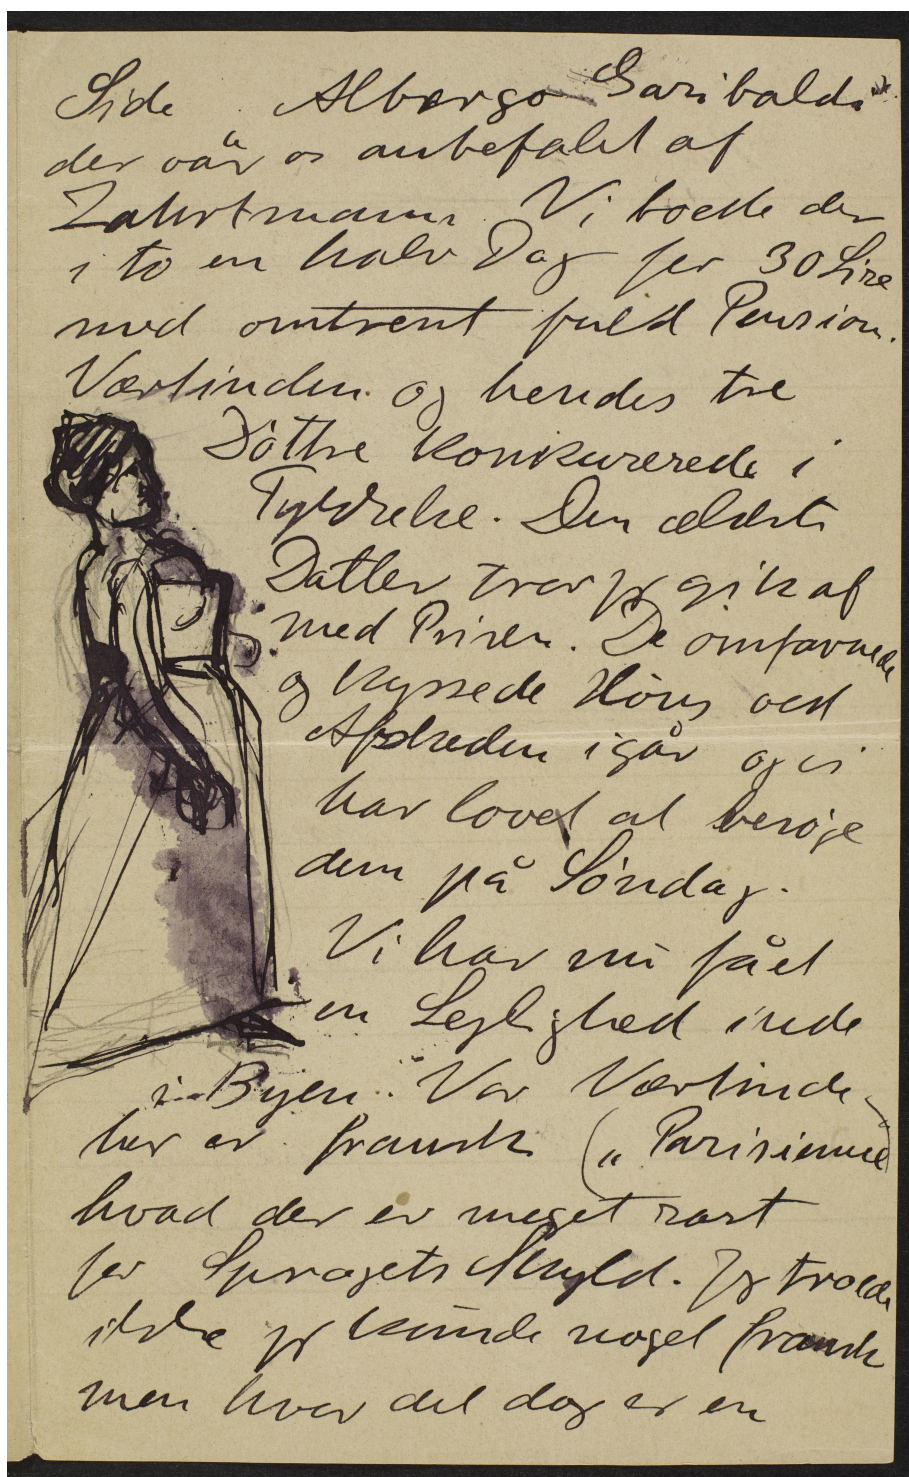 Side Albergo Garibaldi"
der var os anbefalet af
Zahrtmann. Vi boede der
i to en halv Dag for 30 Lire
med omtrent fuld Pension.
Værtinden og hendes tre
Döttre konkurrerede i
Tykkelse. Den ældste
Datter tror jeg gik af
med Prisen. De omfavnede
og kyssede Höns ved
Afskeden igår og vi
har lovet at besøge
dem på Søndag.
Vi har nu fået
en Lejlighed inde
i Byen. Vor Værtinde
her er fransk („Parisienne)
hvad der er meget rart
for Sprogets Skyld. Jeg troede
ikke jeg kunde noget fransk
men hvor det dog er en